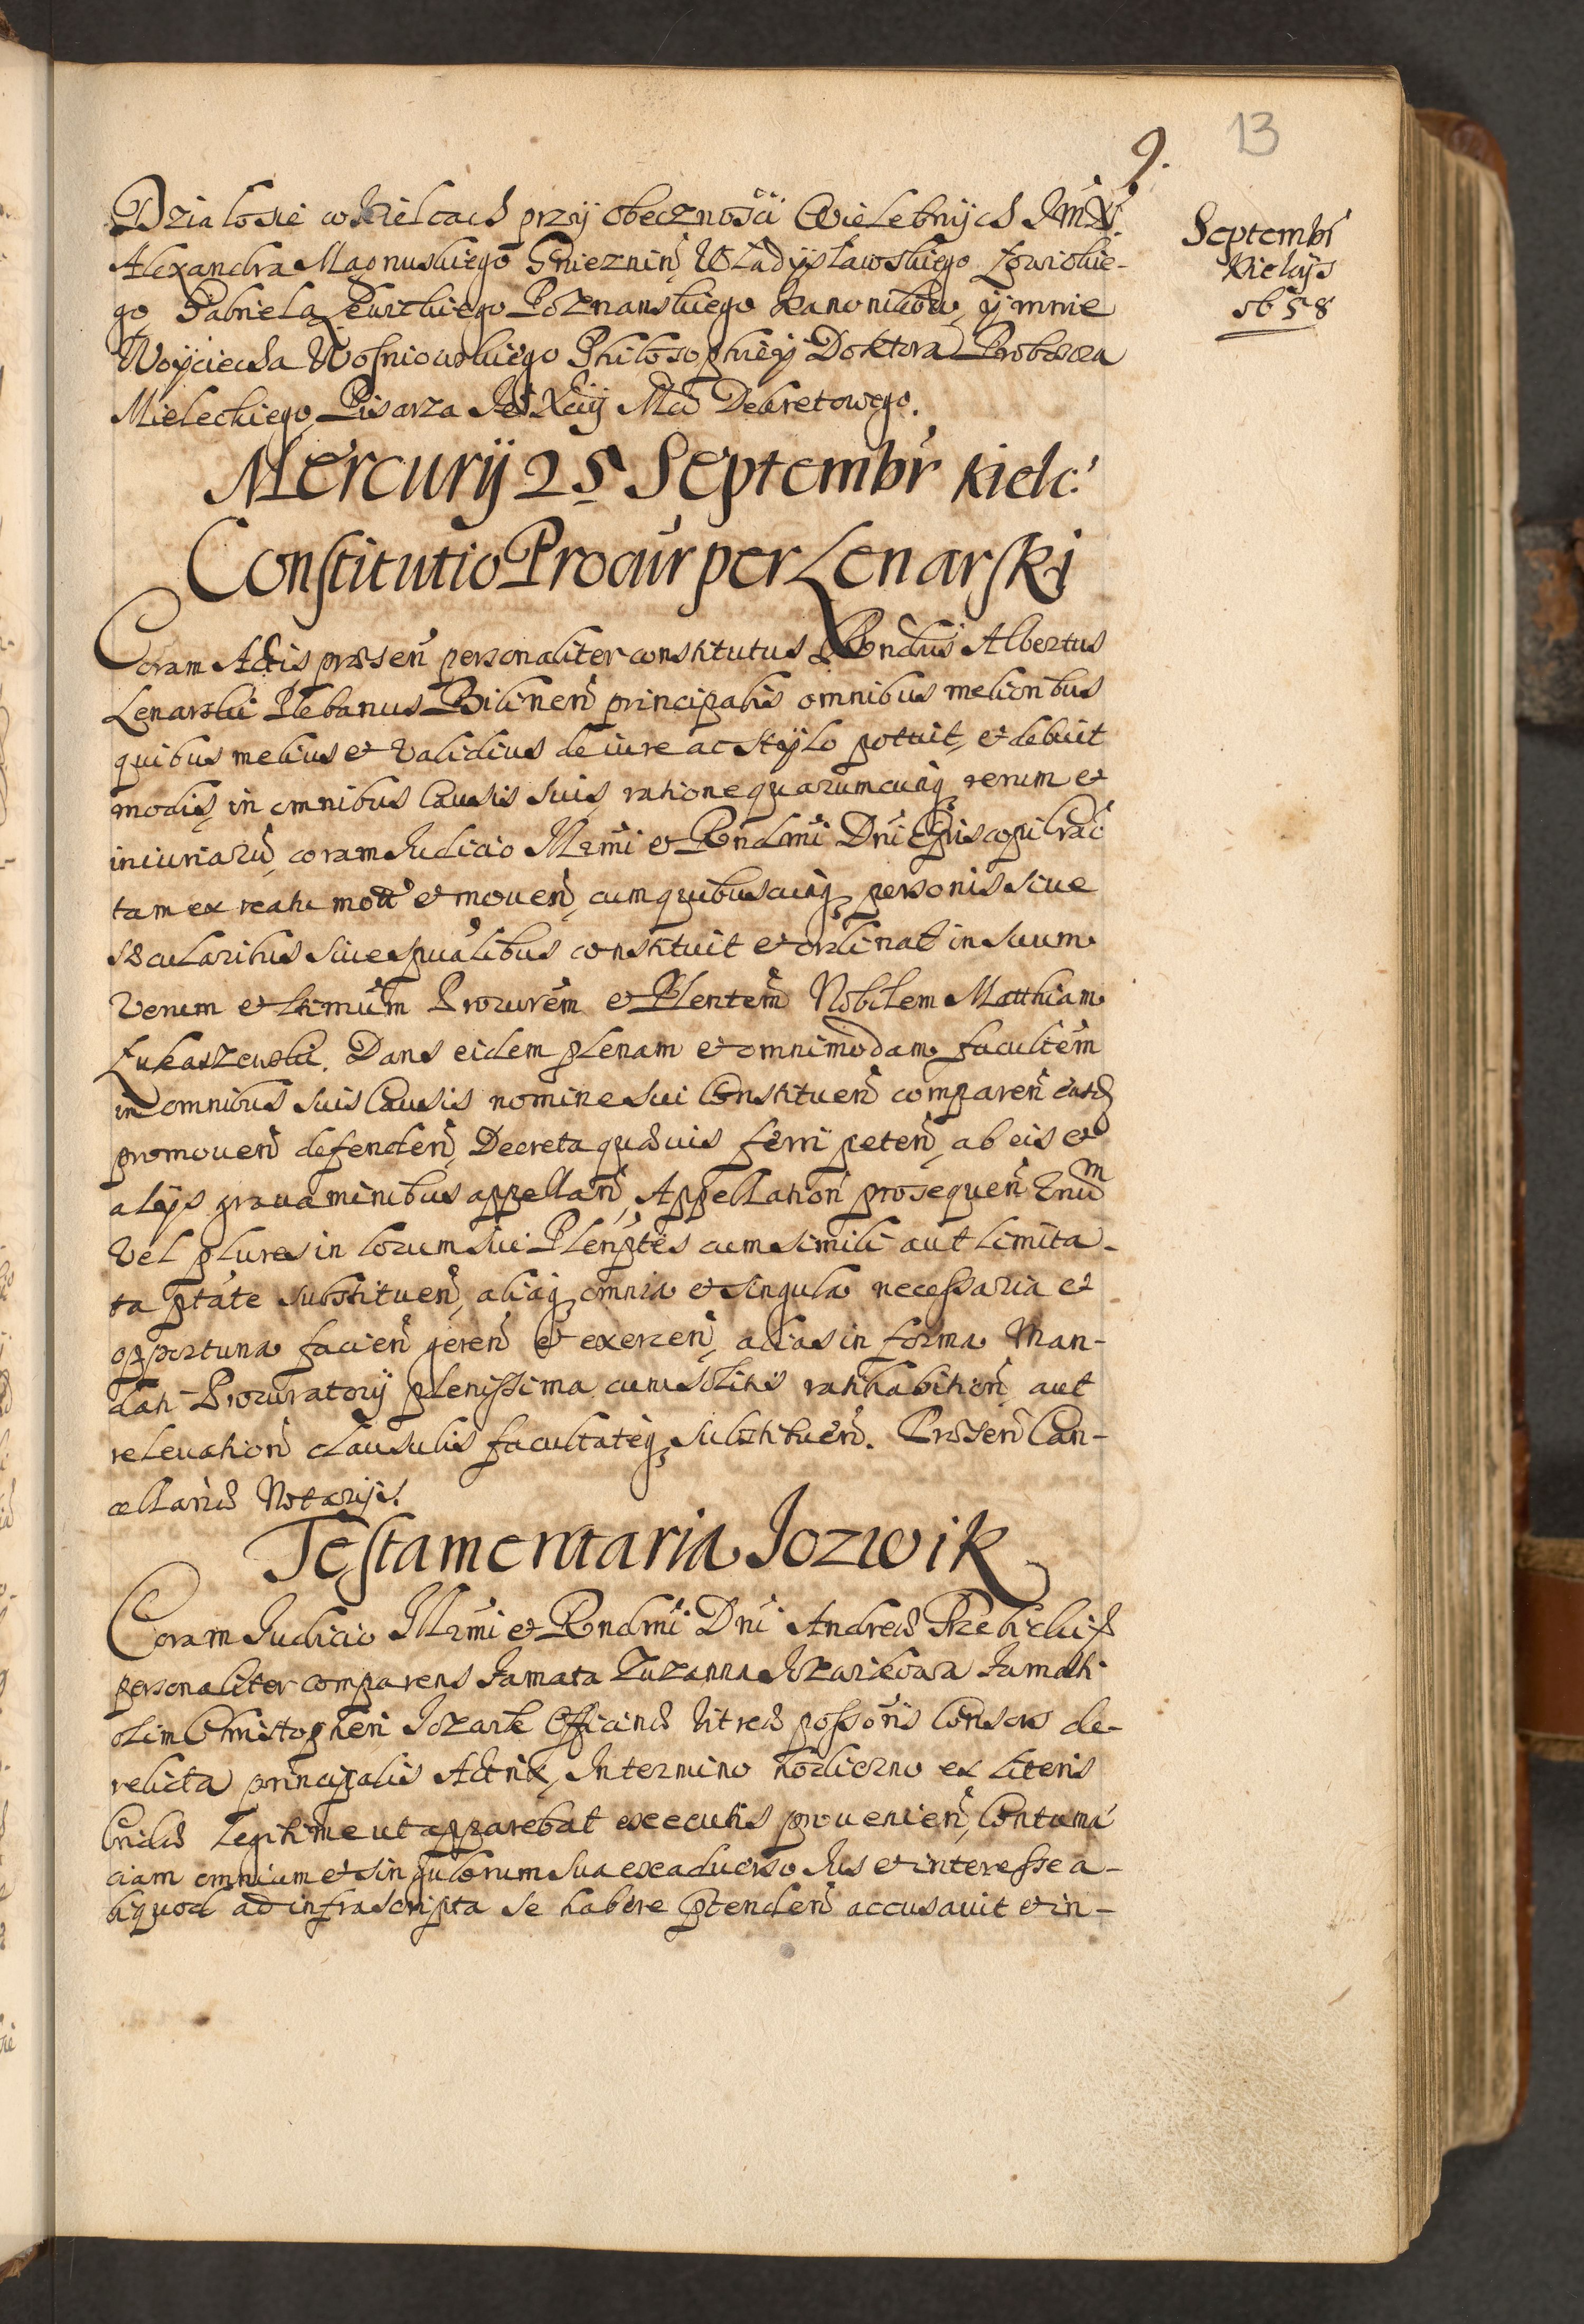 9.
13
Septembr̃
Kielcijs
1658
Działo sie w Kielcach przÿ obecznosci Wielebnÿch Jm̃ X.
Alexandra Magnuskiego Gnieznin̄ Władÿsławskiego Łowickie-
go Gabriela Poznanskiego Kanonikow, ÿ mnie
Woÿciecha Wosniowskiego Philosophiėÿ Doktora Proboscza
Mieleckiego Pisarza Je° Xcij Mci Dekretowego.
Mercurij 25 Septembr̃ Kielc:
Constitutio Procur̃ per Lenarski
Coram Actis præsen̄ personaliter constitutus Rn̄dus Albertus
Lenarski Plebanus Bilinen̄ principalis omnibus melioribus
quibus melius et validius de iure ac stÿlo potuit, et debuit
modis, in omnibus Causis suis, ratione quarumcunq, rerum et
iniuriarū, coram Judicio Illr̃mi et Rn̄dmi Dn̄i Episcopi Crac̄
tam ex reatu mot̄ et mouen̄, cum quibuscunq, personis siue
sæcularibus siue sp̄ualibus constituit et ordinat in suum
verum et ltimum Procurem̄ et Plentem̄ Nobilem Matthiam
Łukaszewski. Dans eidem plenam et omnimodam facultem̄
in omnibus suis Causis nomine sui Constituen̄ comparen̄ easq
promouen̄ defenden̄, Decreta quæuis ferri peten̄, ab eis et
alijs grauaminibus appellan̄, Appellation̄ prosequen̄ Vnū m
vel plures in locum sui Plenp̄tes cum simili aut limita-
ta p̄tate substituen̄, aliaq, omnia et singula necessaria et
opportuna facien̄ geren̄ et exercen̄, alias in forma Man-
dati Procuratorij plenissima cum solitis ratihabition̄ aut
releuation̄ clausulis facultateq, substituen̄. Præsen̄ Can-
cellariæ Notarijs.
Testamentaria Jozwik
Coram Judicio Illr̃mi et Rn̄dmi Dn̄i Andreæ Trzebicki
personaliter comparens Famata Zuzanna Jozwikowa Famati
olim Christopheri Jozwik Officinæ Vitreæ possoris Consors de-
relicta principalis Actrix, In termino hodierno ex literis
Cridæ legitime ut apparebat executis prouenien̄, Contuma
ciam omnium et singulorum sua ex aduerso Jus et interesse a-
liquod ad infrascripta se habere p̄tenden̄ accusauit et in-